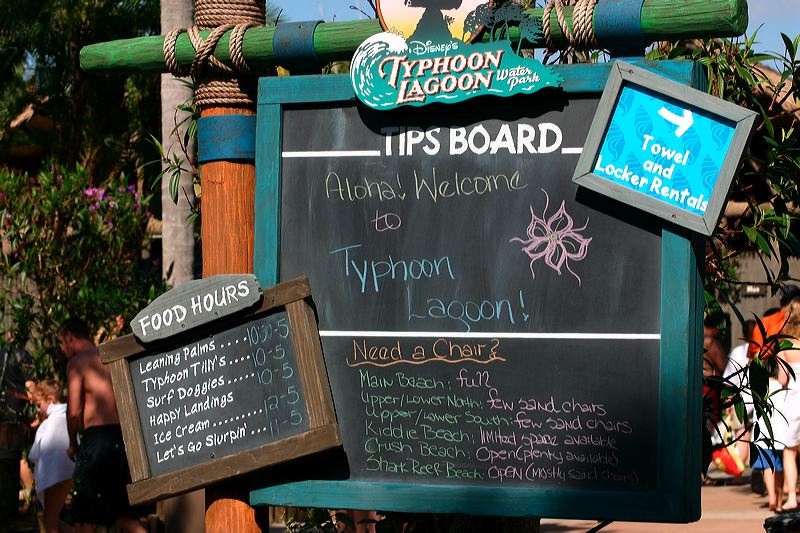 Disney's
TYPHOON
LAGOON
Water
Park
TIPS BOARD
Towel
and
Locker Rentals
Aloha! Welcome
to
Typhoon
Lagoon!
FOOD HOURS
Leaning Palms .... 10:30-5
Typhoon Tilly's .... 10-5
Surf Doggies ...... 10-5
Happy Landings
Ice Cream ........ 12-5
Let's Go Slurpin' ... 11-5
Need a Chair?
Main Beach: full
Upper/Lower North: few sand chairs
Upper/Lower South: few sand chairs
Kiddie Beach: limited space available
Crush Beach: Open (plenty available)
Shark Reef Beach: OPEN (mostly sand chairs)